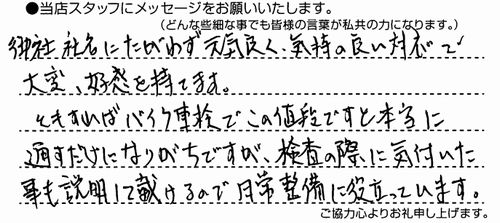 ●当店スタッフにメッセージをお願いいたします。
（どんな些細な事でも皆様の言葉が私共の力になります。）
御社 社名にたがわず元気良く、気持の良い対応で
大変、好感を持てます。
ともすればバイク車検でこの値段ですと本当に
通すだけになりがちですが、検査の際に気付いた
事も説明して戴けるので日常整備に役立っています。
ご協力心よりお礼申し上げます。